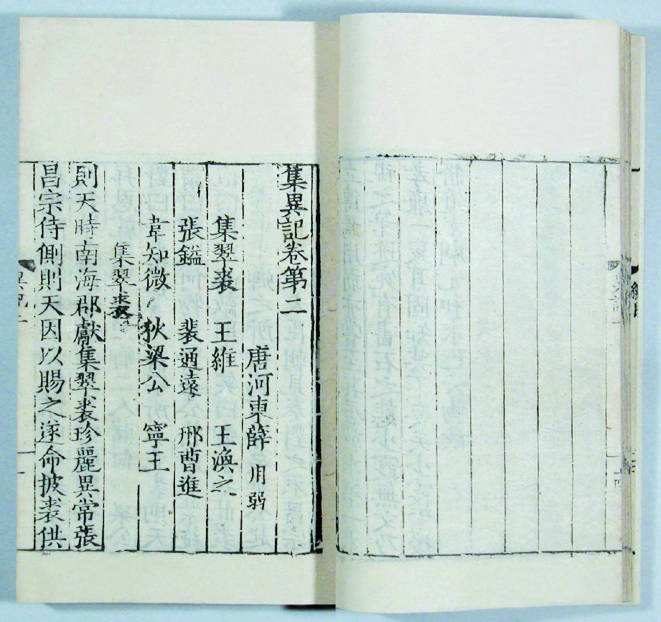 集異記卷第二
唐河東薛用弱
集翠裘 王維 王渙之
張鎰 裴通遠 邢曹進
韋知微 狄梁公 寧王
集翠裘
則天時南海郡獻集翠裘珍麗異常張
昌宗侍側則天因以賜之遂命披裘供